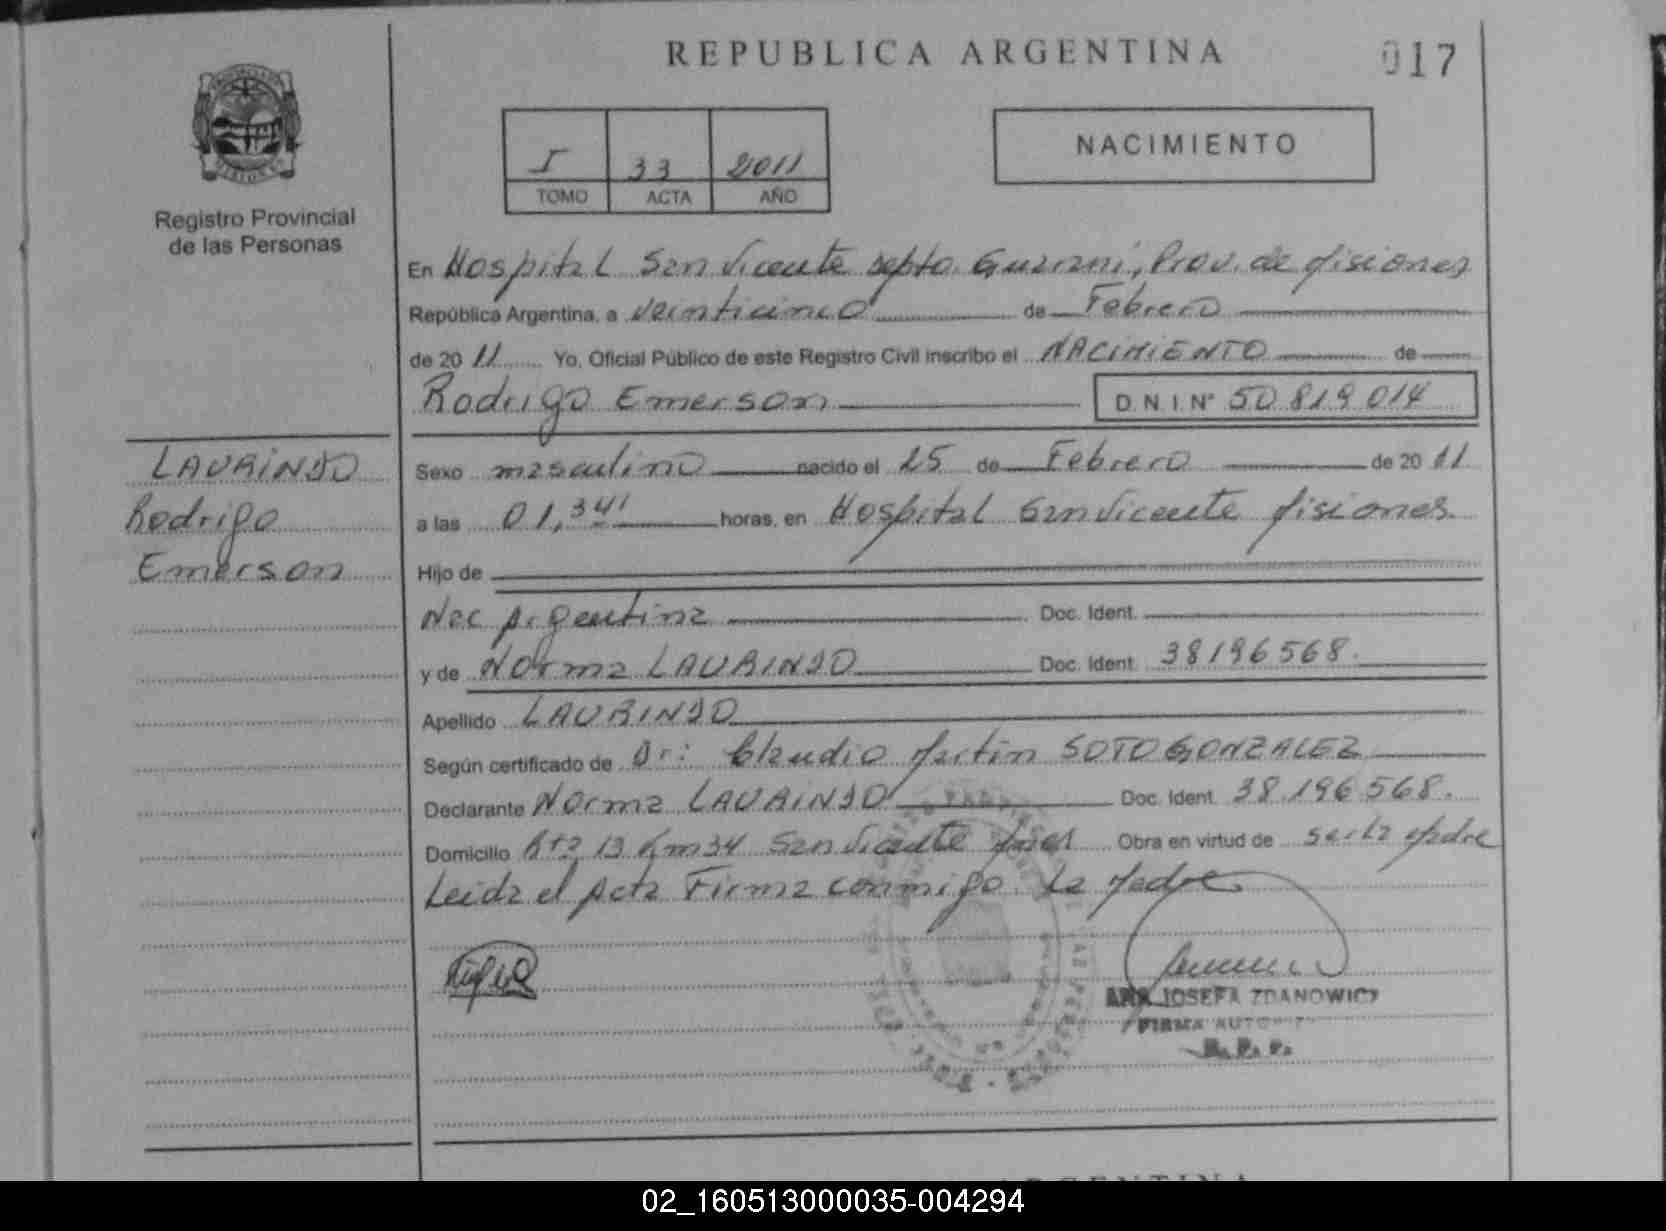 REPUBLICA ARGENTINA
017
I 33 2011
TOMO ACTA AÑO
NACIMIENTO
Registro Provincial
de las Personas
En Hospital San Vicente Depto. Guarani, Prov. de Misiones
República Argentina, a veinticinco de Febrero
de 20 11 Yo, Oficial Público de este Registro Civil inscribo el NACIMIENTO de
Rodrigo Emerson D.N.I.Nº 50.819.014
LAURINDO
Rodrigo
Emerson
Sexo masculino nacido el 25 de Febrero de 20 11
a las 01,34' horas, en Hospital San Vicente Misiones
Hijo de
Nac Argentina Doc. Ident.
y de Norma LAURINDO Doc. Ident. 38196568.
Apellido LAURINDO
Según certificado de Dr: Claudio Martin SOTO GONZALEZ
Declarante Norma LAURINDO Doc. Ident. 38.196.568.
Domicilio Rta 13 Km 34 San Vicente Mnes Obra en virtud de ser la Madre
Leida el Acta Firma conmigo la Madre
ANA JOSEFA ZDANOWICZ
FIRMA
R. P. P.
ARGENTINA
02_160513000035-004294